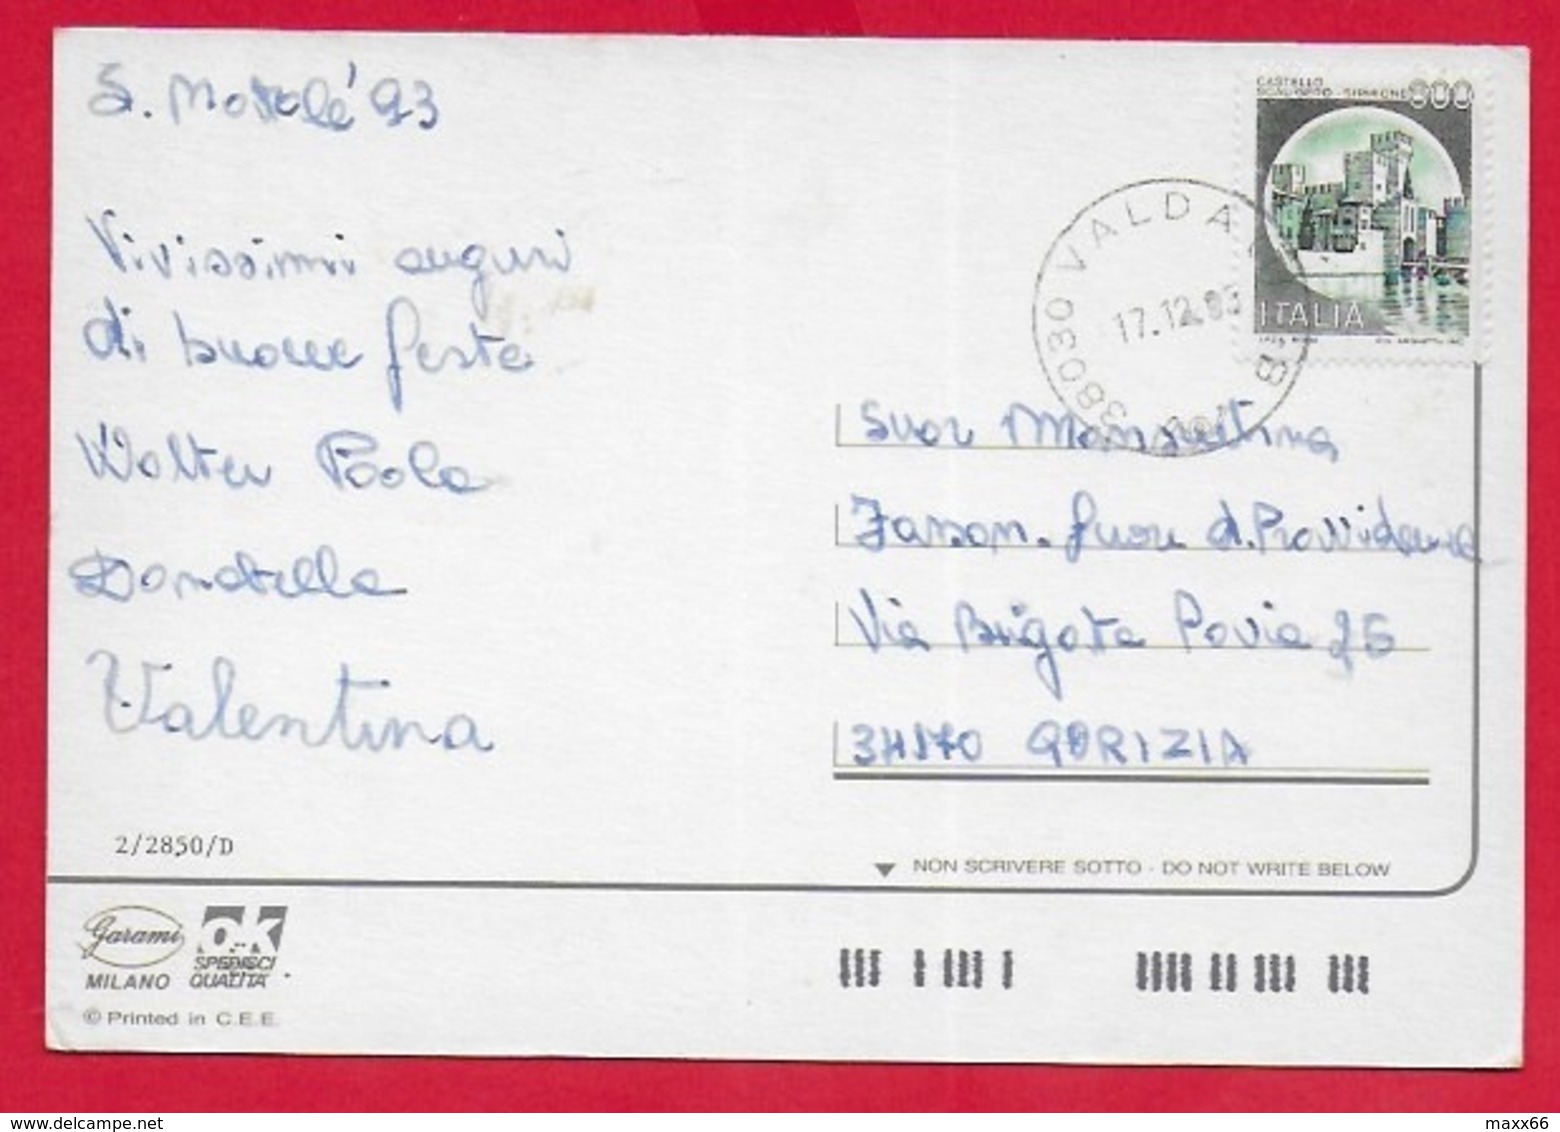 S. Natale '93
Vivissimi auguri
di buone feste
Walter Paola
Donatella
Valentina
2/2850/D
Garami
MILANO
OK
SPEDISCI
QUALITA'
© Printed in C.E.E.
CASTELLO
SCALIGERO - SIRMIONE
800
ITALIA
38030 VALDA
17.12.93
Suor Mansuetina
Zanon. Suore d. Provvidenza
Via Brigata Pavia 25
34170 GORIZIA
NON SCRIVERE SOTTO - DO NOT WRITE BELOW
maxx66